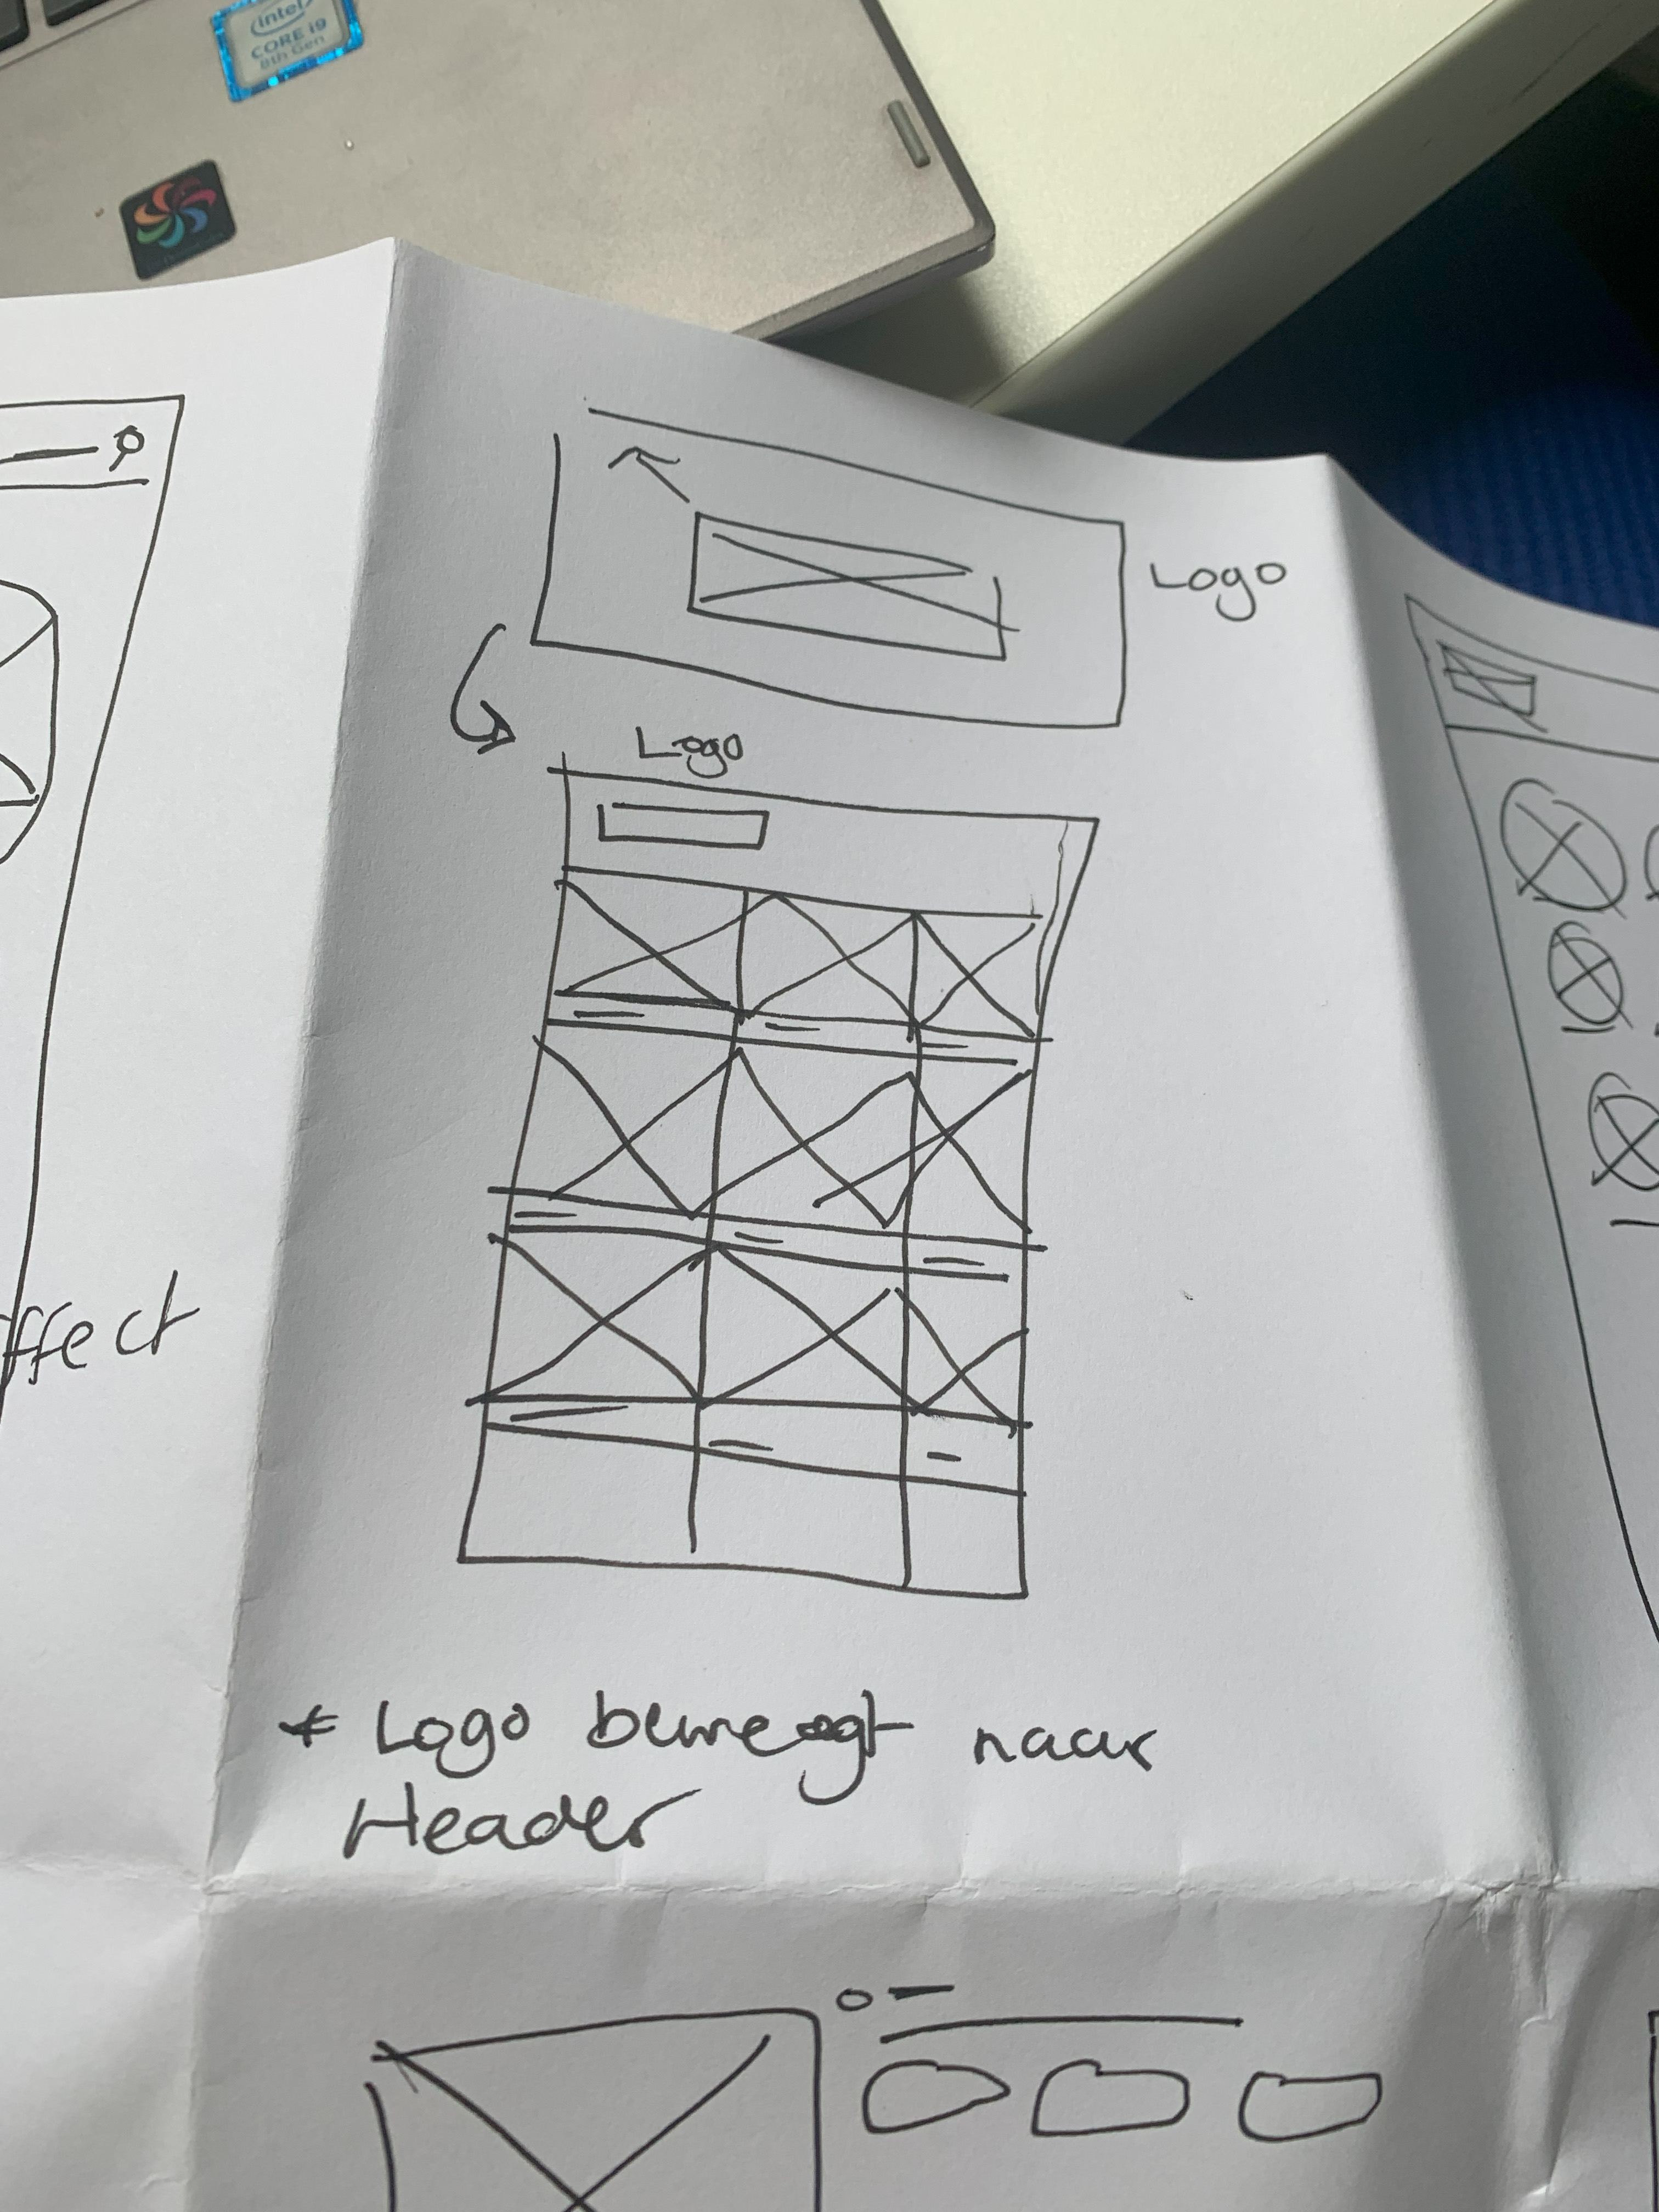 intel
CORE i9
8th Gen
Logo
Logo
ffect
* Logo beweegt naar
Header